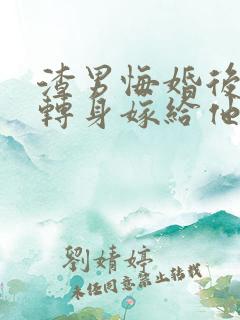 渣男悔婚後
轉身嫁給他
劉婧婷
未经同意禁止转载